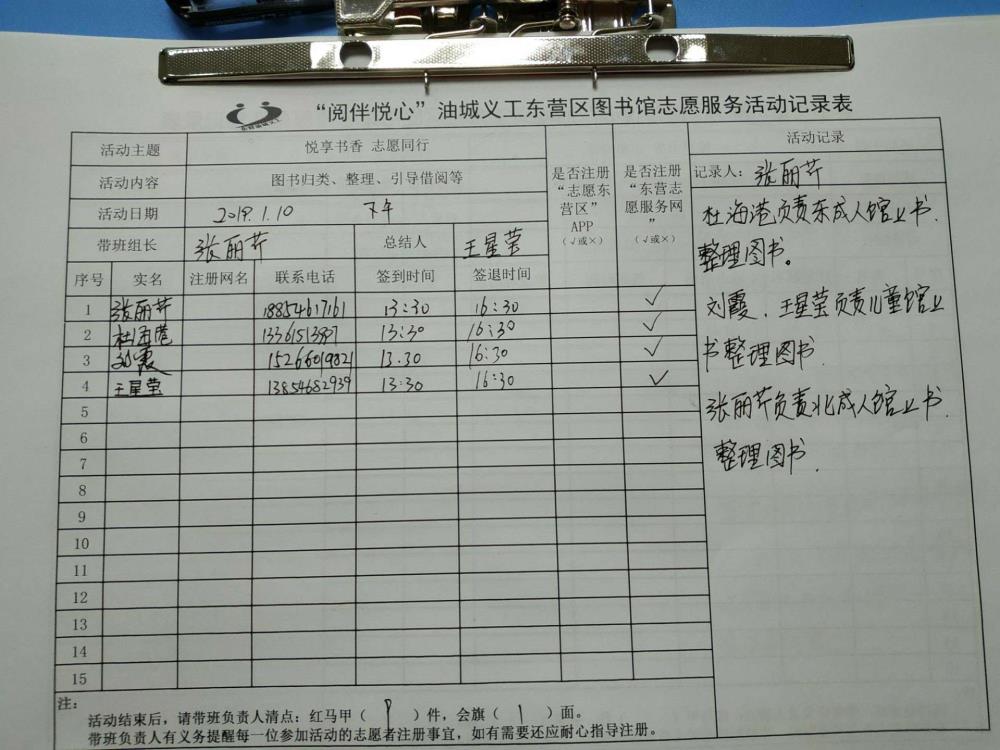 “阅伴悦心”油城义工东营区图书馆志愿服务活动记录表
活动主题 悦享书香 志愿同行
活动内容 图书归类、整理、引导借阅等
活动日期 2019.1.10 下午
带班组长 张丽芹 总结人 王星莹
序号 实名 注册网名 联系电话 签到时间 签退时间
是否注册“志愿东营区”APP（√或×）
是否注册“东营志愿服务网”（√或×）
1 张丽芹 18854617161 13:30 16:30 √
2 杜海港 13:30 16:30 √
3 刘霞 15266019821 13.30 16:30 √
4 王星莹 13854682939 13:30 16:30 √
5
6
7
8
9
10
11
12
13
14
15
活动记录
记录人：张丽芹
杜海港负责东成人馆上书.
整理图书。
刘霞、王星莹负责儿童馆上
书整理图书.
张丽芹负责北成人馆上书.
整理图书.
注：
活动结束后，请带班负责人清点：红马甲（ ）件，会旗（ 1 ）面。
带班负责人有义务提醒每一位参加活动的志愿者注册事宜，如有需要还应耐心指导注册。